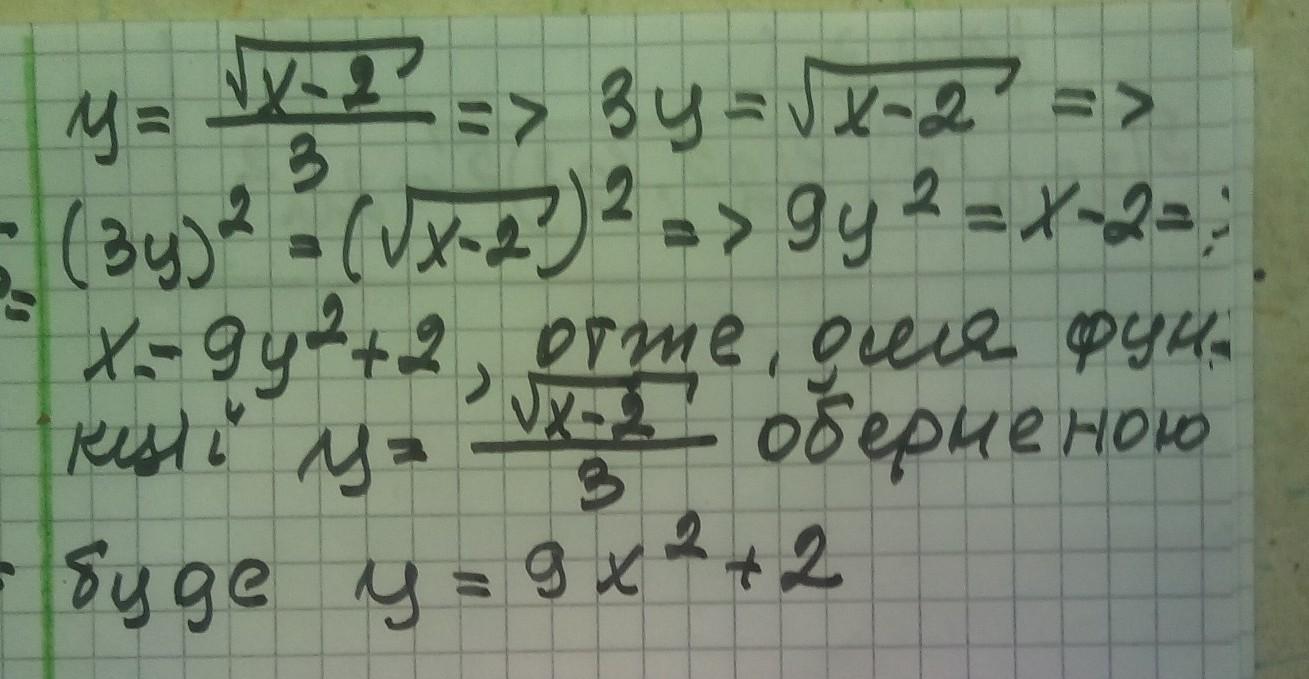 y = √(x-2)/3 => 3y = √(x-2) =>
(3y)² = (√(x-2))² => 9y² = x-2 =>
x = 9y² + 2, отже, для фун-
кції y = √(x-2)/3 оберненою
буде y = 9x² + 2